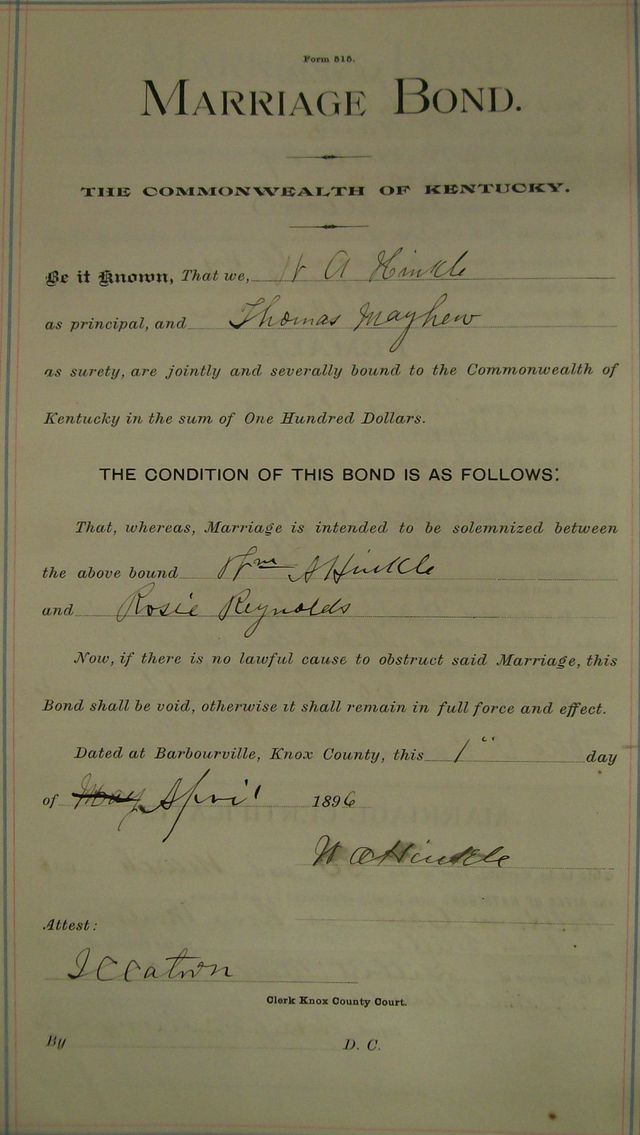 Form 515.
MARRIAGE BOND.
THE COMMONWEALTH OF KENTUCKY.
Be it Known, That we, W A Hinkle
as principal, and Thomas Mayhew
as surety, are jointly and severally bound to the Commonwealth of
Kentucky in the sum of One Hundred Dollars.
THE CONDITION OF THIS BOND IS AS FOLLOWS:
That, whereas, Marriage is intended to be solemnized between
the above bound Wm A Hinkle
and Rosie Reynolds
Now, if there is no lawful cause to obstruct said Marriage, this
Bond shall be void, otherwise it shall remain in full force and effect.
Dated at Barbourville, Knox County, this 1" day
of May April 1896
W A Hinkle
Attest:
Catron
Clerk Knox County Court.
By D. C.